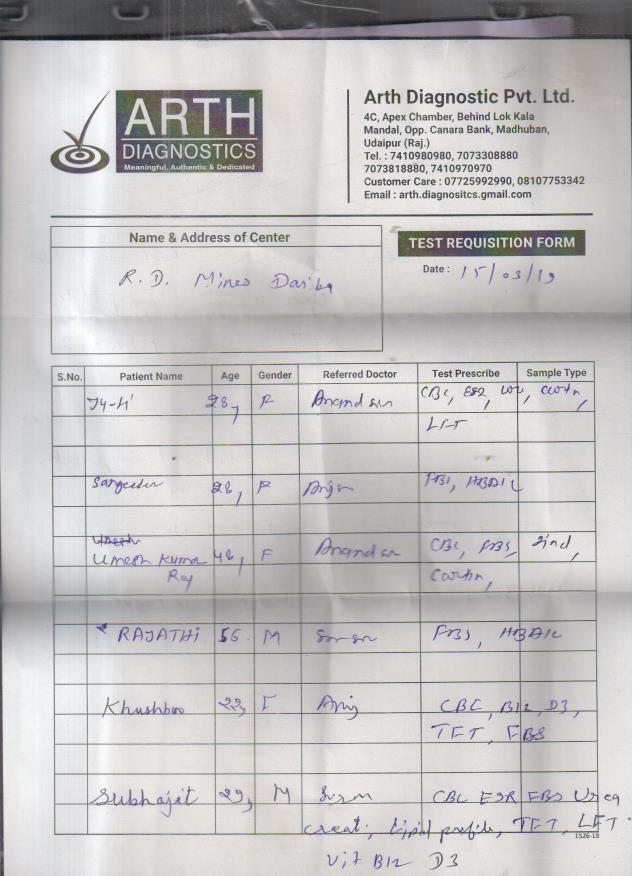 ARTH
DIAGNOSTICS
Meaningful, Authentic & Dedicated
Arth Diagnostic Pvt. Ltd.
4C, Apex Chamber, Behind Lok Kala
Mandal, Opp. Canara Bank, Madhuban,
Udaipur (Raj.)
Tel. : 7410980980, 7073308880
7073818880, 7410970970
Customer Care : 07725992990, 08107753342
Email : arth.diagnositcs.gmail.com
Name & Address of Center
TEST REQUISITION FORM
R. D. Mines
Date : 15/03/19
S.No. Patient Name Age Gender Referred Doctor Test Prescribe Sample Type
28, F CBC, ESR,
LFT
28, F HBA1C
Umesh
Umesh Kumar 48, F CBC, FBS,
Raj
RAJATHi 56. M FBS, HBA1C
Khushboo 22, F CBC, B12, D3,
TFT, FBS
Subhajit 29, M CBC ESR FBS Urea
creat, lipid profile, TFT, LFT.
1526-18
Vit B12 D3